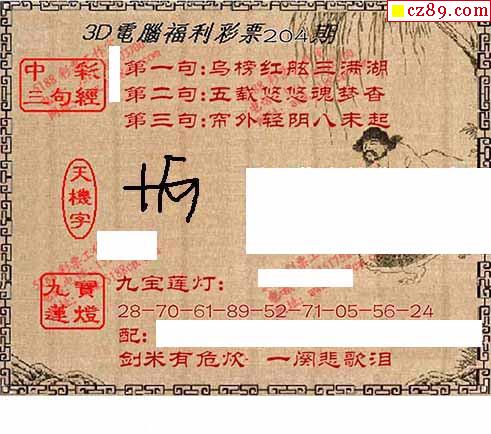 cz89.com
3D電腦福利彩票204期
中彩
三句經
第一句:乌榜红舷三满湖
第二句:五载悠悠魂梦杳
第三句:帘外轻阴八未起
天機字
九寶
蓮燈
九宝莲灯:
28-70-61-89-52-71-05-56-24
配:
剑米有危炊 一阕悲歌泪